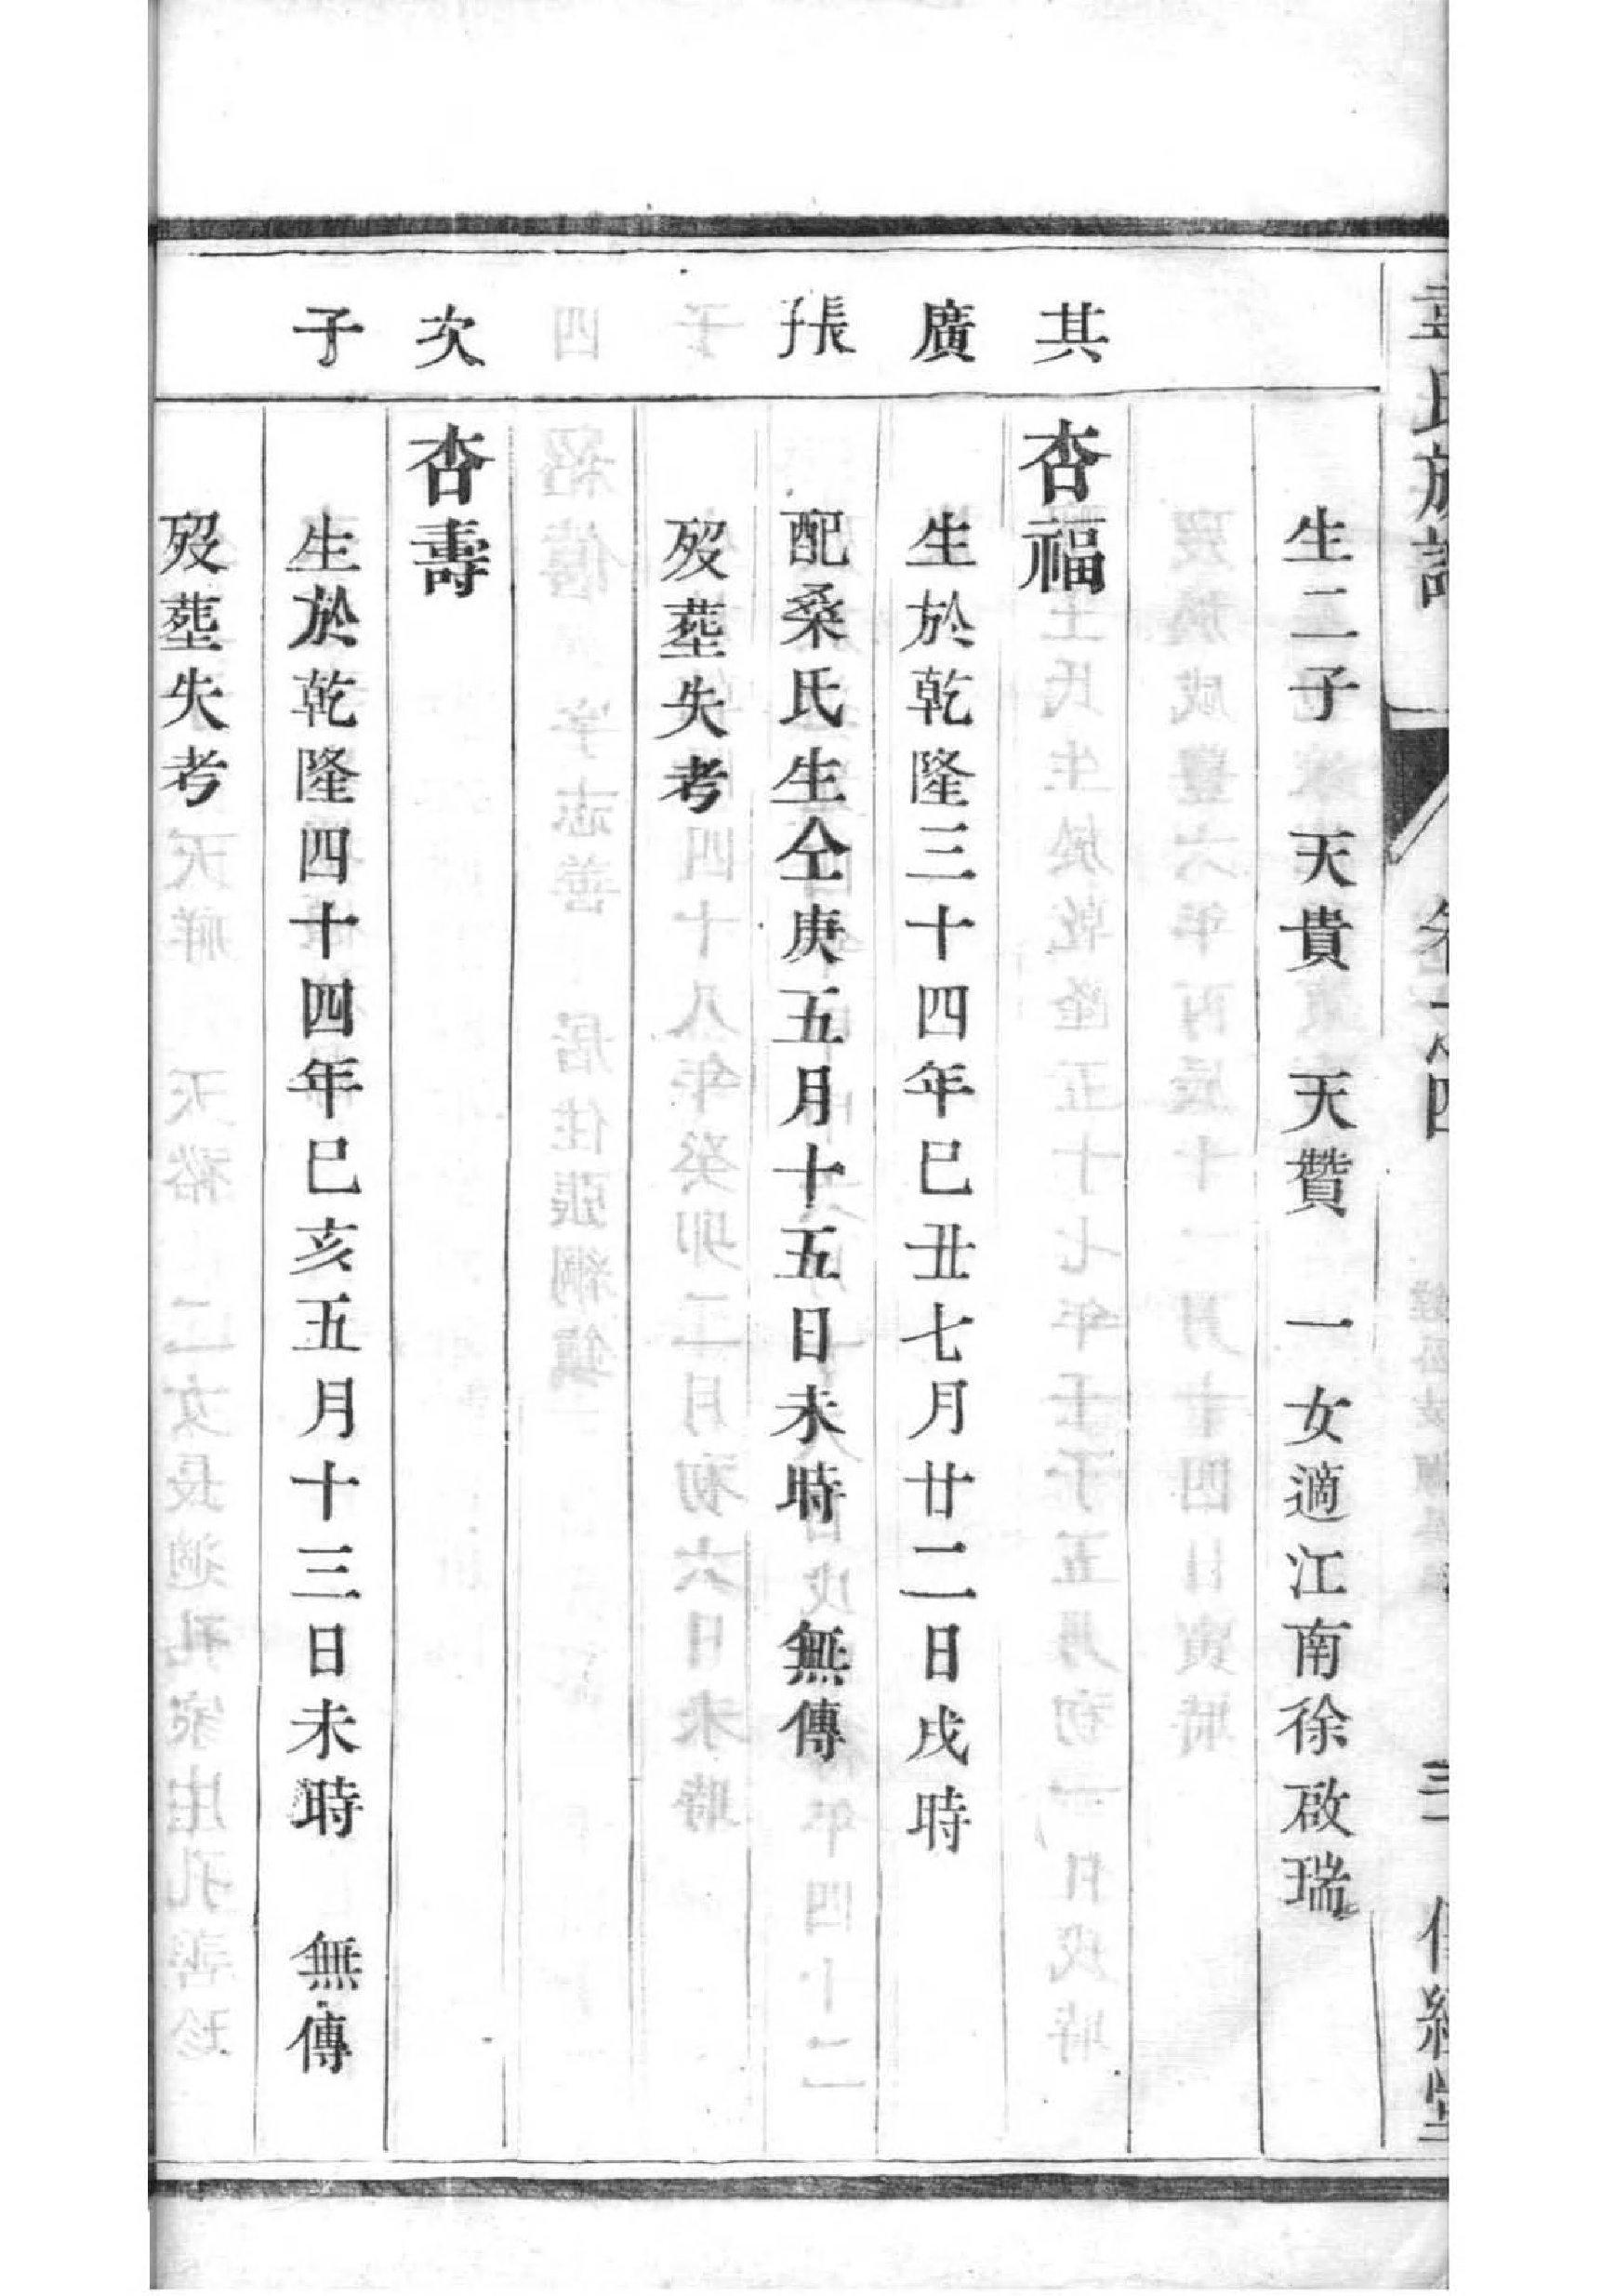 氏族譜 卷之四 傳經堂
生二子 天貴 天贊 一女適江南徐啟瑞
其廣長子
杏福
生於乾隆三十四年巳丑七月廿二日戌時
配桑氏生仝庚五月十五日未時 無傳
歿塟失考
次子
杏壽
生於乾隆四十四年巳亥五月十三日未時 無傳
歿塟失考